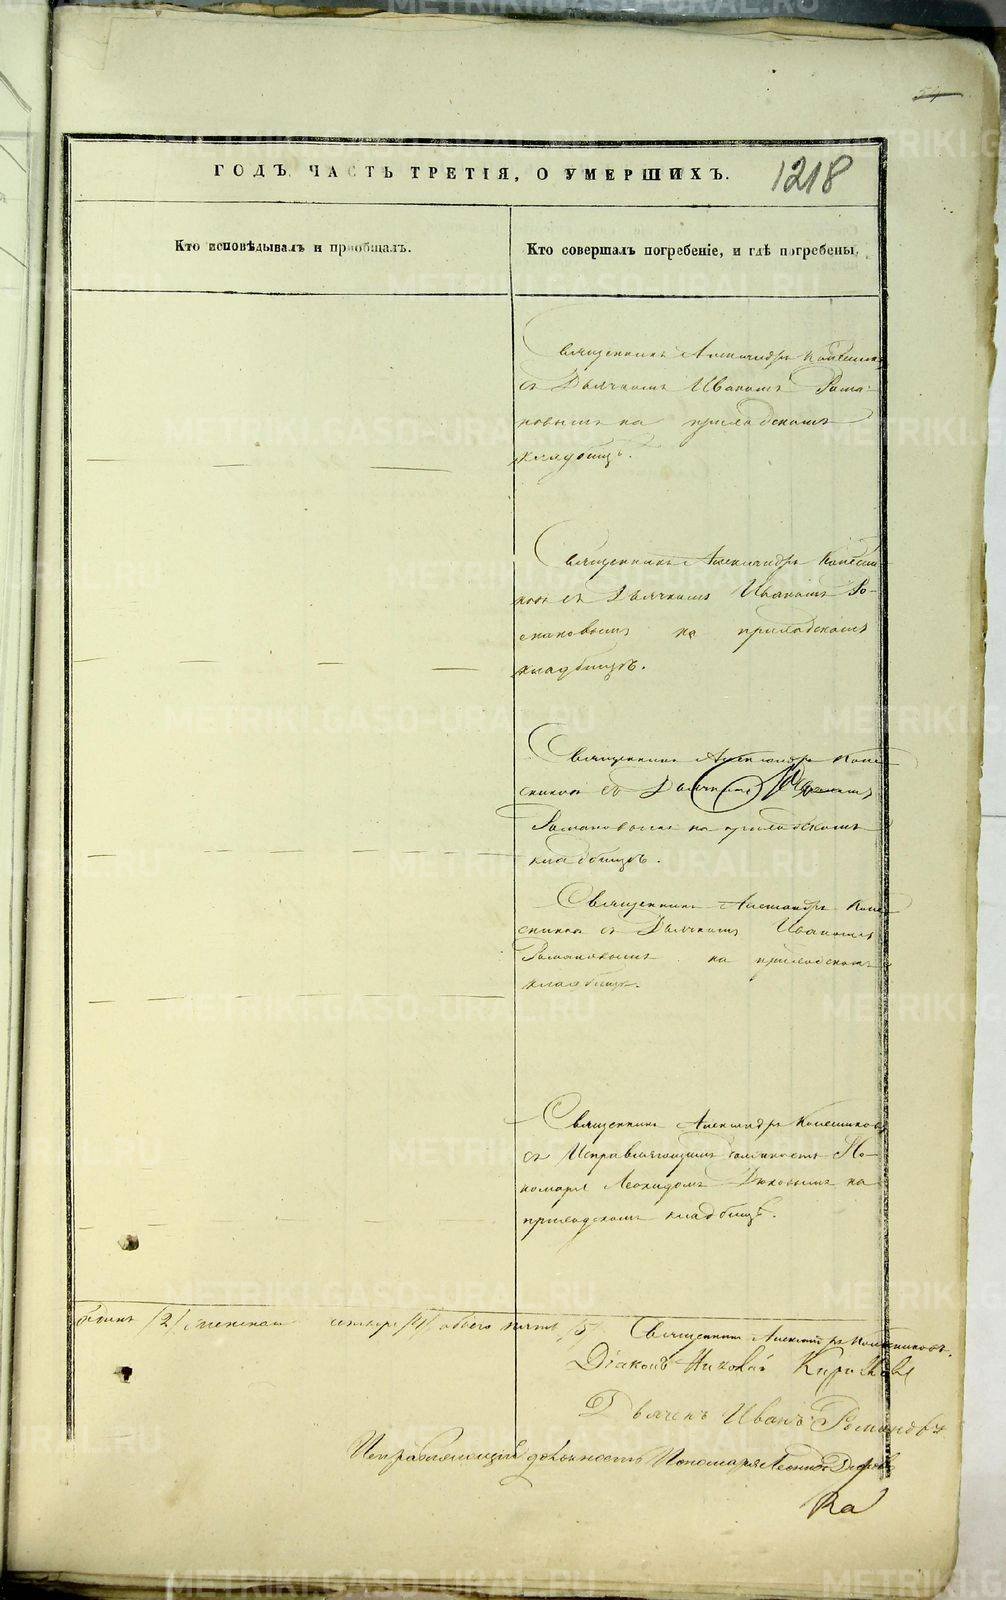 ГОДЪ, ЧАСТЬ ТРЕТІЯ, О УМЕРШИХЪ.
1218
Кто исповѣдывалъ и пріобщалъ.
Кто совершалъ погребеніе, и гдѣ погребены.
Священникъ Александръ
съ Дьячкомъ Иваномъ Рома-
новымъ на приходскомъ
кладбищѣ.
Священникъ Александръ Колесни-
ковъ съ Дьячкомъ Иваномъ Ро-
мановымъ на приходскомъ
кладбищѣ.
Священникъ Александръ Коле-
сниковъ съ Дьячкомъ
Романовымъ на приходскомъ
кладбищѣ.
Священникъ Александръ Коле-
сниковъ съ Дьячкомъ Иваномъ
Романовымъ на приходскомъ
кладбищѣ.
Священникъ Александръ Колесниковъ
съ Исправляющимъ должность По-
номаря Леонидомъ на
приходскомъ кладбищѣ.
/2/ женска четыре /4/ обоего пять /5/
Священникъ Александръ Колесниковъ.
Діаконъ Николай
Дьячекъ Иванъ Романовъ
Исправляющій должность Пономаря Леонидъ
METRIKI.GASO-URAL.RU